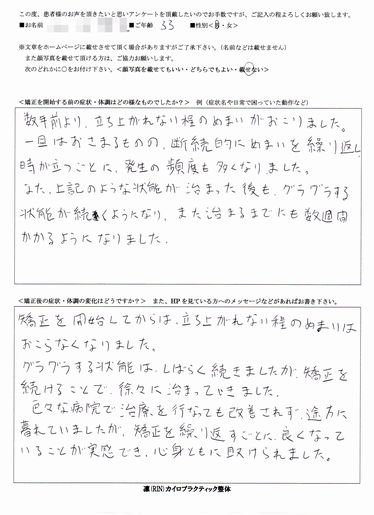 この度、患者様のお声を頂きたいと思いアンケートを頂戴したいのでお手数ですが、ご記入の程よろしくお願い致します。
■お名前 ■ご年齢 33 ■性別<男・女>
※文章をホームページに載せさせて頂く場合がありますがご了承下さい。（名前などは載せません）
また顔写真を載せて頂ける方は、ご協力お願いします。
次のどれかに○をお付け下さい。<顔写真を載せてもいい・どちらでもよい・載せない>
<矯正を開始する前の症状・体調はどの様なものでしたか？> 例（症状名や日常で困っていた動作など）
数年前より、立ち上がれない程のめまいがおこりました。
一旦はおさまるものの、断続的にめまいを繰り返し
時が立つごとに、発生の頻度も多くなりました。
また、上記のような状態が治まった後も、グラグラする
状態が続くようになり、また治まるまでにも数週間
かかるようになりました。
<矯正後の症状・体調の変化はどうですか？> また、HPを見ている方へのメッセージなどがあればお書き下さい。
矯正を開始してからは、立ち上がれない程のめまいは
おこらなくなりました。
グラグラする状態は、しばらく続きましたが、矯正を
続けることで、徐々に治まってきました。
色々な病院で治療を行なっても改善されず、途方に
暮れていましたが、矯正を繰り返すごとに、良くなって
いることが実感でき、心身ともに助けられました。
凛(RIN)カイロプラクティック整体